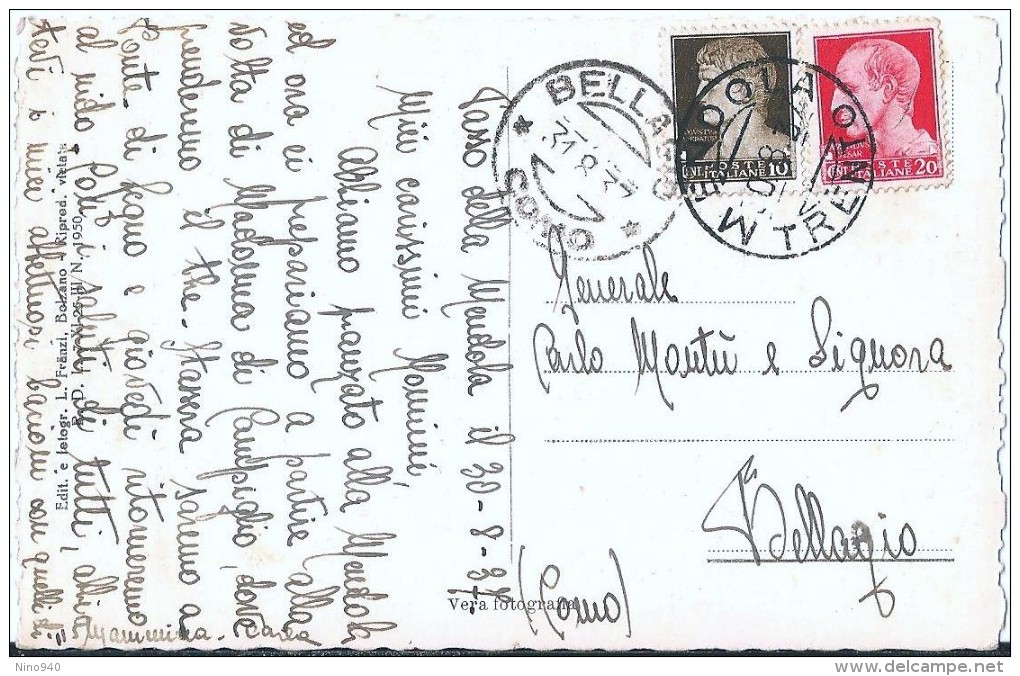 Passo della Mendola il 30-8-37
Miei carissimi Mommini,
Abbiamo pranzato alla Mendola
ed ora ci prepariamo a partire alla
volta di Madonna di Campiglio, dove
prenderemo il the. Stassera saremo a
Ponte di Legno e giovedì ritorneremo
al nido. Coi saluti di tutti, abbia
tevi i miei affettuosi bacioni con quelli di
Mammina. Carla
Edit. e fotogr. L. Fränzl, Bolzano - Ripred. vietata
R. D. 25 III N. 1950
Vera fotografia
BELLAGIO
COMO
31.8.37
MENDOLA
TRENTO
CENT. POSTE 10
ITALIANE
CENT. POSTE 20
ITALIANE
Generale
Carlo Montù e Signora
Bellagio
(Como)
Nino940
http://www.delcampe.net